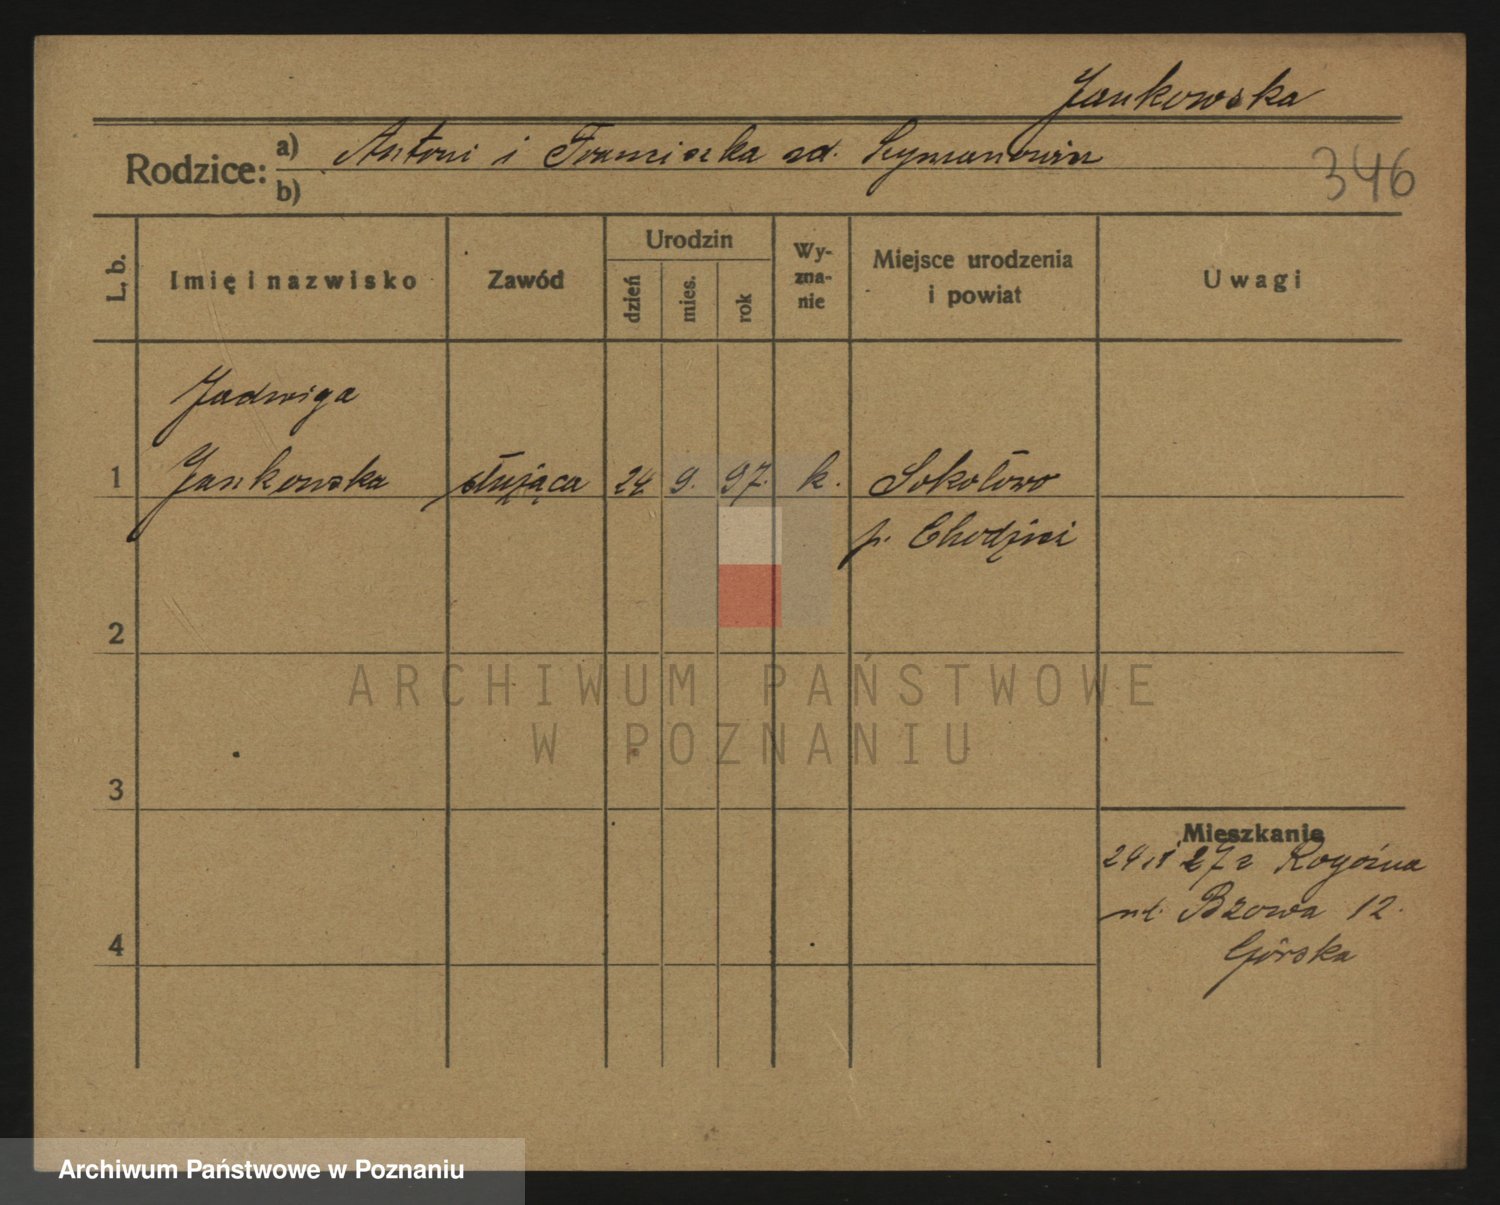 Jankowska
Rodzice: a) Antoni i Franciszka zd.
b)
346
L. b.
Imię i nazwisko
Zawód
Urodzin
dzień
mies.
rok
Wy-
zna-
nie
Miejsce urodzenia
i powiat
Uwagi
Jadwiga
1 Jankowska służąca 24 9. 97. k. Sokołowo
p. Chodzież
2
ARCHIWUM PAŃSTWOWE
W POZNANIU
3
Mieszkanie
27 r Rogoźna
12.
4
Górska
Archiwum Państwowe w Poznaniu